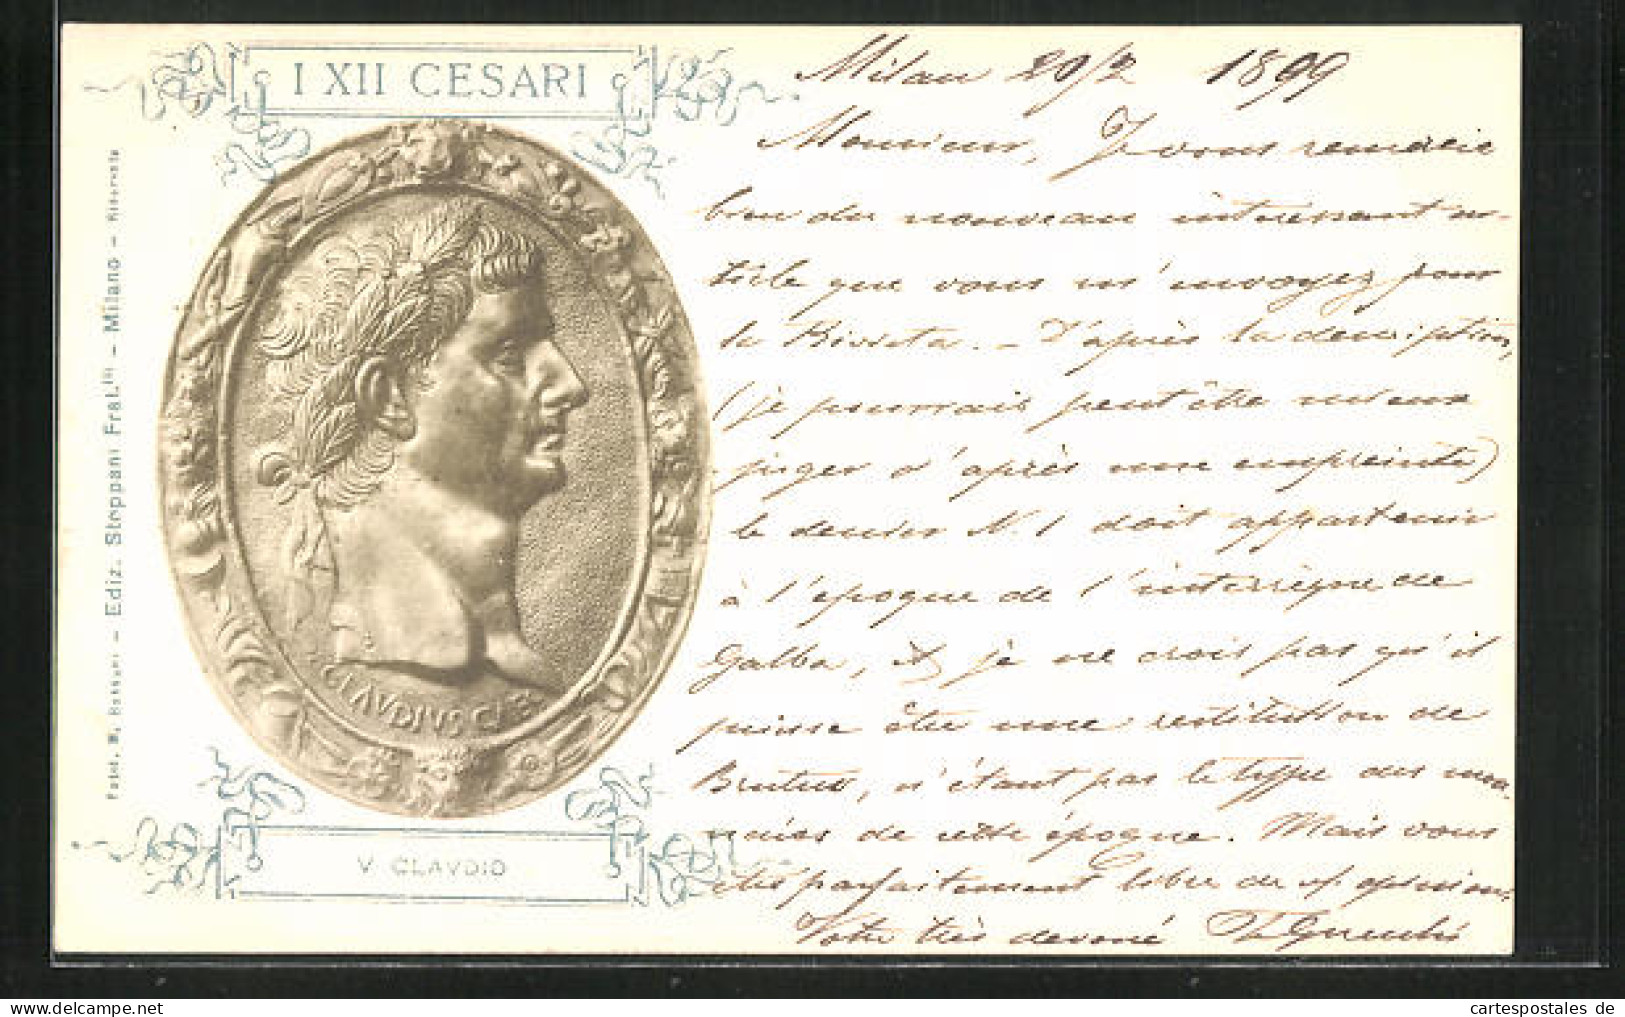 I XII CESARI
Milan 20/2 1899
Monsieur, Je vous remercie
bien du nouveau intéressant ar-
ticle que vous m'envoyez pour
la Rivista. – D'après la description,
(je pourrais peut être mieux
juger d'après une empreinte)
le denier N. 1 doit appartenir
à l'époque de l'interrègne de
Galba, & je ne crois pas qu'il
puisse être une restitution de
Brutus, n'étant pas le type des mon-
naies de cette époque. Mais vous
êtes parfaitement libre de opinion.
Votre très dévoué Gnecchi
CLAVDIVS CAE
V CLAVDIO
Ediz. Stoppani Frat.lli – Milano – Riservata
cartespostales de